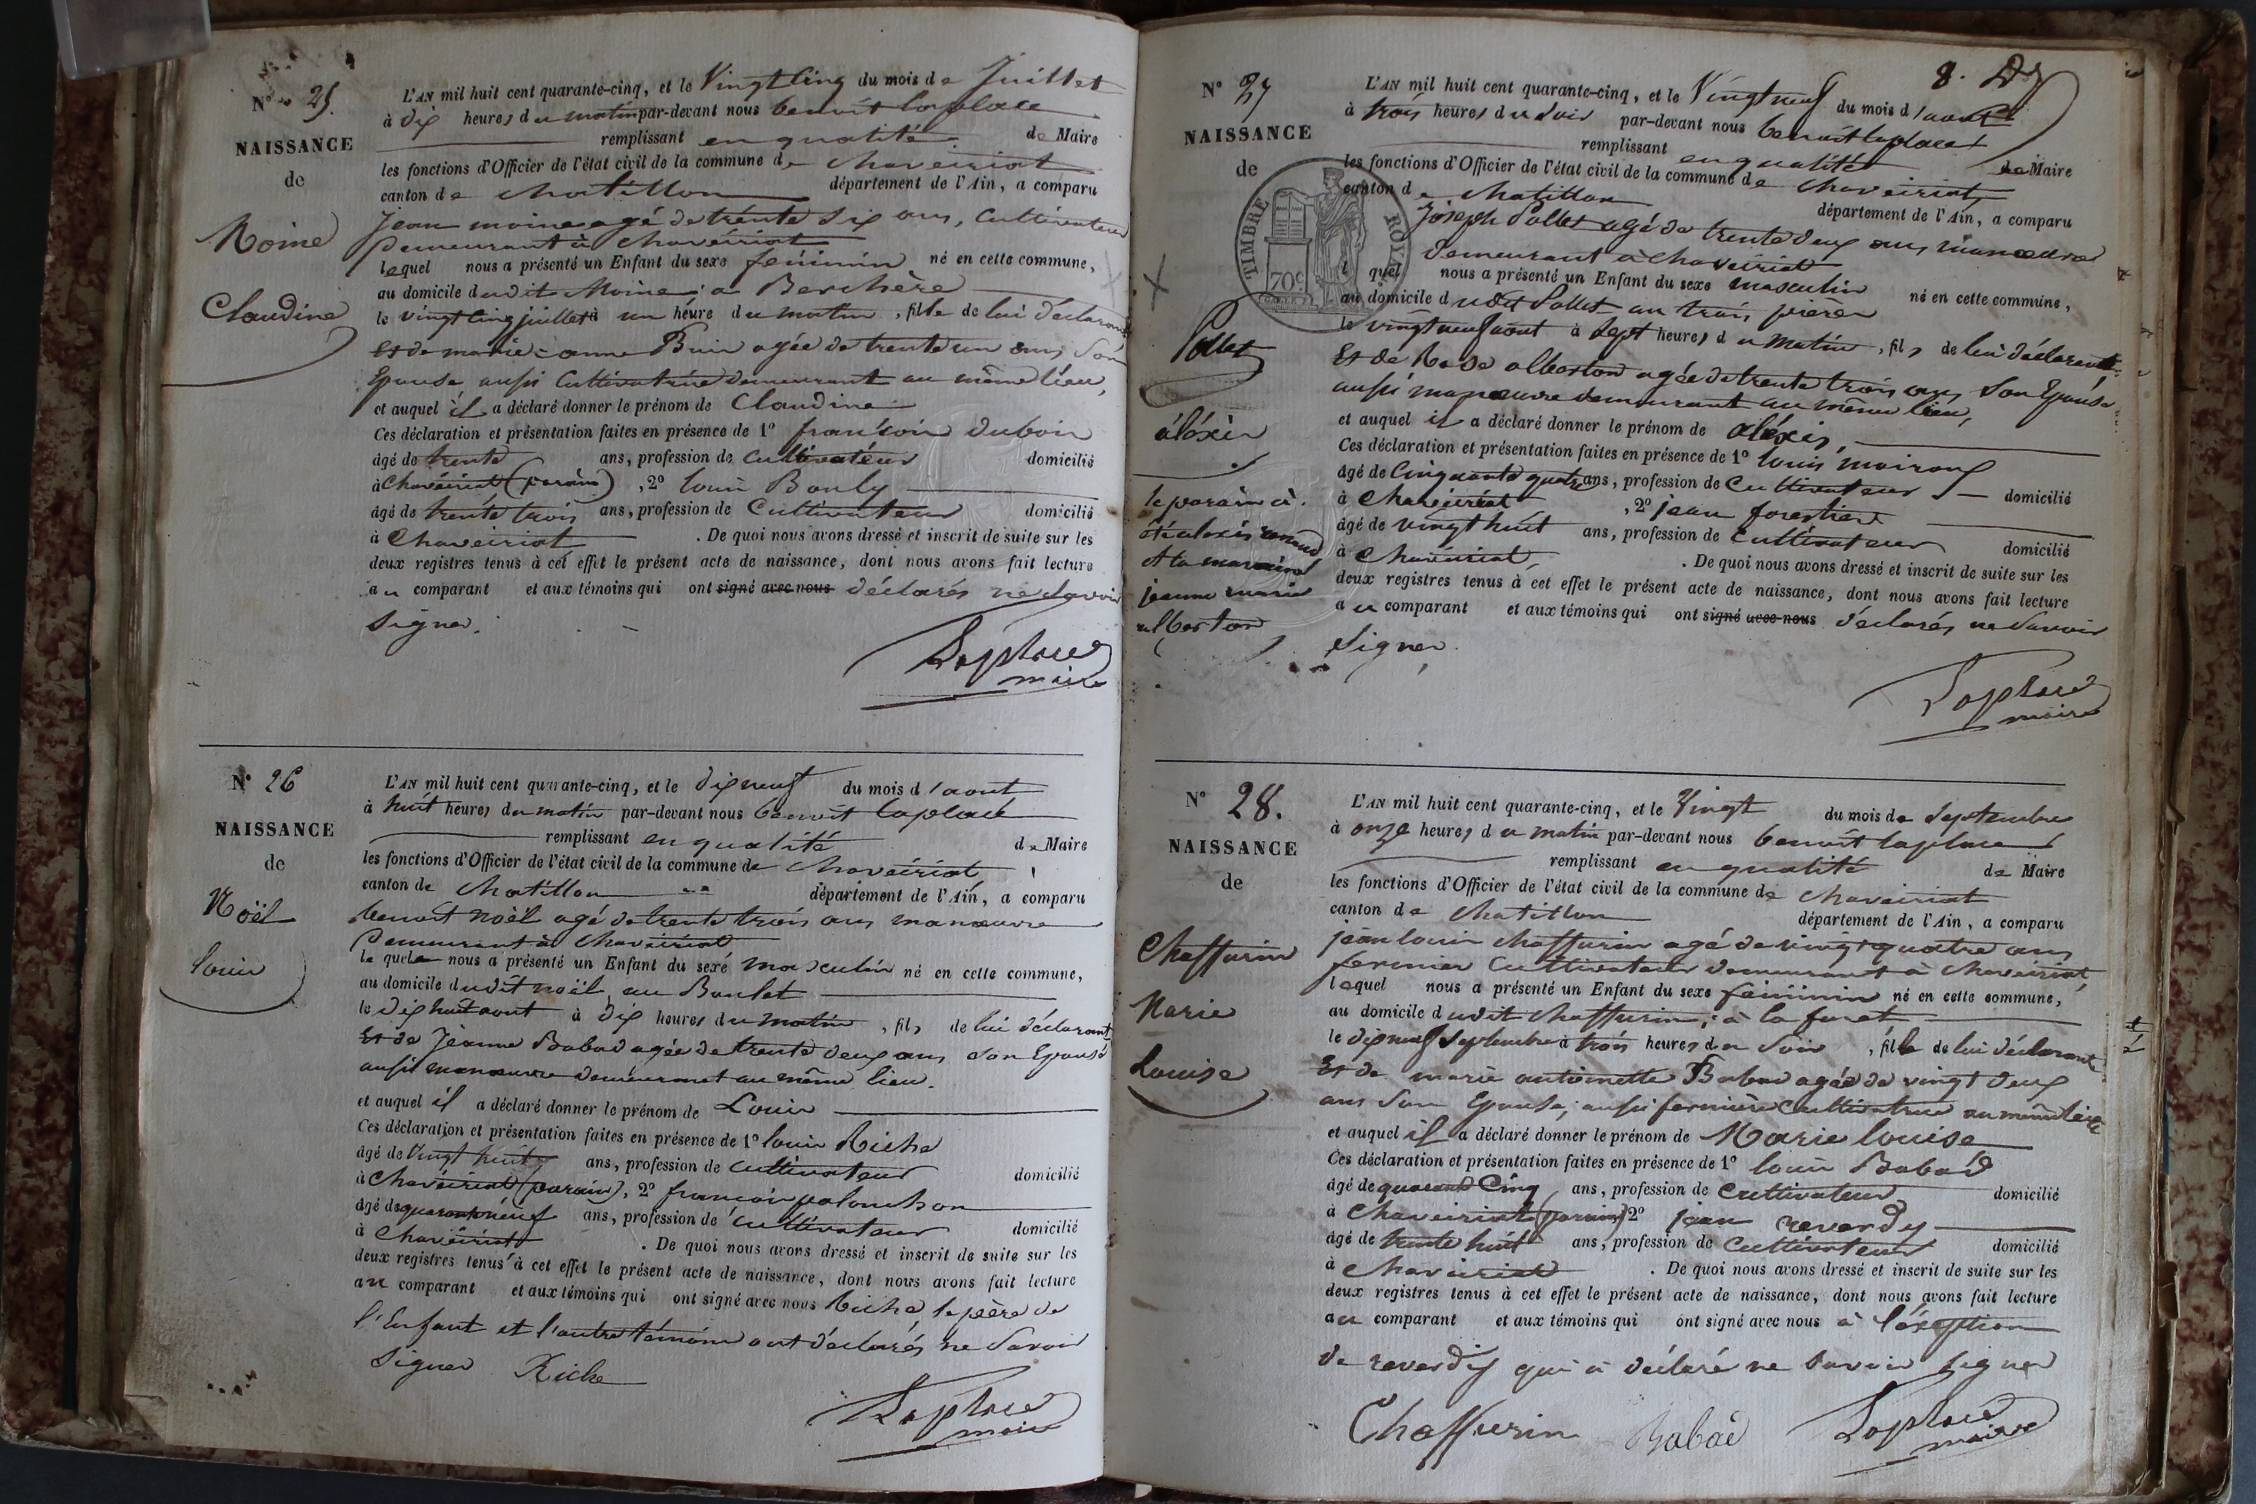 N° 25.
NAISSANCE
de
Moine
Claudine
L'AN mil huit cent quarante-cinq, et le Vingt Cinq du mois de Juillet
à dix heures du matin par-devant nous benoit laplace
remplissant en qualité de Maire
les fonctions d'Officier de l'état civil de la commune de chaveiriat
canton de chatillon département de l'Ain, a comparu
Jean moine agé de trente six ans, Cultivateur
demeurant à chaveiriat
lequel nous a présenté un Enfant du sexe féminin né en cette commune,
au domicile dudit Moine; a Berchère
le vingt cinq juillet à un heure du matin, fille de lui déclarant
Et de marie-anne Buir agée de trente un ans, Son
Epouse aussi Cultivatrice demeurant au même lieu,
et auquel il a déclaré donner le prénom de Claudine
Ces déclaration et présentation faites en présence de 1° françois dubois
âgé de trente ans, profession de Cultivateur domicilié
à Chaveiriat (parain), 2° louis Bouly
âgé de trente trois ans, profession de Cultivateur domicilié
à Chaveiriat. De quoi nous avons dressé et inscrit de suite sur les
deux registres tenus à cet effet le présent acte de naissance, dont nous avons fait lecture
au comparant et aux témoins qui ont signé avec nous déclarés ne Savoir
signer.
Laplace
maire
N° 26
NAISSANCE
de
Noël
Louis
L'AN mil huit cent quarante-cinq, et le dix neuf du mois d'aout
à huit heures du matin par-devant nous benoit laplace
remplissant en qualité de Maire
les fonctions d'Officier de l'état civil de la commune de chaveiriat
canton de chatillon département de l'Ain, a comparu
benoit noël agé de trente trois ans manœuvre
demeurant à chaveiriat
lequel nous a présenté un Enfant du sexe masculin né en cette commune,
au domicile dudit noël, au Boulet
le dix huit aout à dix heures du matin, fils de lui déclarant
Et de Jeanne Babad agée de trente deux ans son Epouse
aussi manœuvre demeurant au même lieu.
et auquel il a déclaré donner le prénom de Louis
Ces déclaration et présentation faites en présence de 1° louis Riche
âgé de vingt huit ans, profession de cultivateur domicilié
à Chaveiriat (parain), 2° françois palanchon
âgé de quarante neuf ans, profession de cultivateur domicilié
à Chaveiriat. De quoi nous avons dressé et inscrit de suite sur les
deux registres tenus à cet effet le présent acte de naissance, dont nous avons fait lecture
au comparant et aux témoins qui ont signé avec nous Riche le père de
l'Enfant et l'autre témoin ont déclarés ne Savoir
signer Riche
Laplace
maire
8.
N° 27
NAISSANCE
de
TIMBRE ROYAL
70c
Pollet
aléxis
le parain à
été alexis renaud
et la maraine
jeanne marie
alberton
L'AN mil huit cent quarante-cinq, et le Vingt neuf du mois d'aout
à trois heures du Soir par-devant nous benoit laplace
remplissant en qualité de Maire
les fonctions d'Officier de l'état civil de la commune de chaveiriat
canton de chatillon département de l'Ain, a comparu
Joseph Pollet agé de trente deux ans manœuvre
demeurant à chaveiriat
lequel nous a présenté un Enfant du sexe masculin né en cette commune,
au domicile dudit Pollet au trois
le vingt neuf aout à Sept heures du matin, fils de lui déclarant
Et de Rose alberton agée de trente trois ans Son Epouse
aussi manœuvre demeurant au même lieu,
et auquel il a déclaré donner le prénom de aléxis,
Ces déclaration et présentation faites en présence de 1° louis moiroux
âgé de Cinquante quatre ans, profession de Cultivateur domicilié
à Chaveiriat, 2° jean forestier
âgé de vingt huit ans, profession de Cultivateur domicilié
à Chaveiriat. De quoi nous avons dressé et inscrit de suite sur les
deux registres tenus à cet effet le présent acte de naissance, dont nous avons fait lecture
au comparant et aux témoins qui ont signé avec nous déclarés ne Savoir
Signer.
Laplace
maire
N° 28.
NAISSANCE
de
Chaffurin
Marie
Louise
L'AN mil huit cent quarante-cinq, et le Vingt du mois de Septembre
à onze heures du matin par-devant nous benoit laplace
remplissant en qualité de Maire
les fonctions d'Officier de l'état civil de la commune de chaveiriat
canton de chatillon département de l'Ain, a comparu
jean louis chaffurin agé de vingt quatre ans
fermier Cultivateur demeurant à chaveiriat,
lequel nous a présenté un Enfant du sexe féminin né en cette commune,
au domicile dudit chaffurin; à la foret
le dix neuf Septembre à trois heures du Soir, fille de lui déclarant
Et de marie antoinette Babad agée de vingt deux
ans Son Epouse, aussi fermière Cultivatrice au même lieu
et auquel il a déclaré donner le prénom de Marie louise
Ces déclaration et présentation faites en présence de 1° louis Babad
âgé de quarante Cinq ans, profession de cultivateur domicilié
à Chaveiriat (parain) 2° jean reverdy
âgé de trente huit ans, profession de Cultivateur domicilié
à Chaveiriat. De quoi nous avons dressé et inscrit de suite sur les
deux registres tenus à cet effet le présent acte de naissance, dont nous avons fait lecture
au comparant et aux témoins qui ont signé avec nous à l'éxeption
de reverdy qui à déclaré ne Savoir signer
Chaffurin Babad Laplace
maire